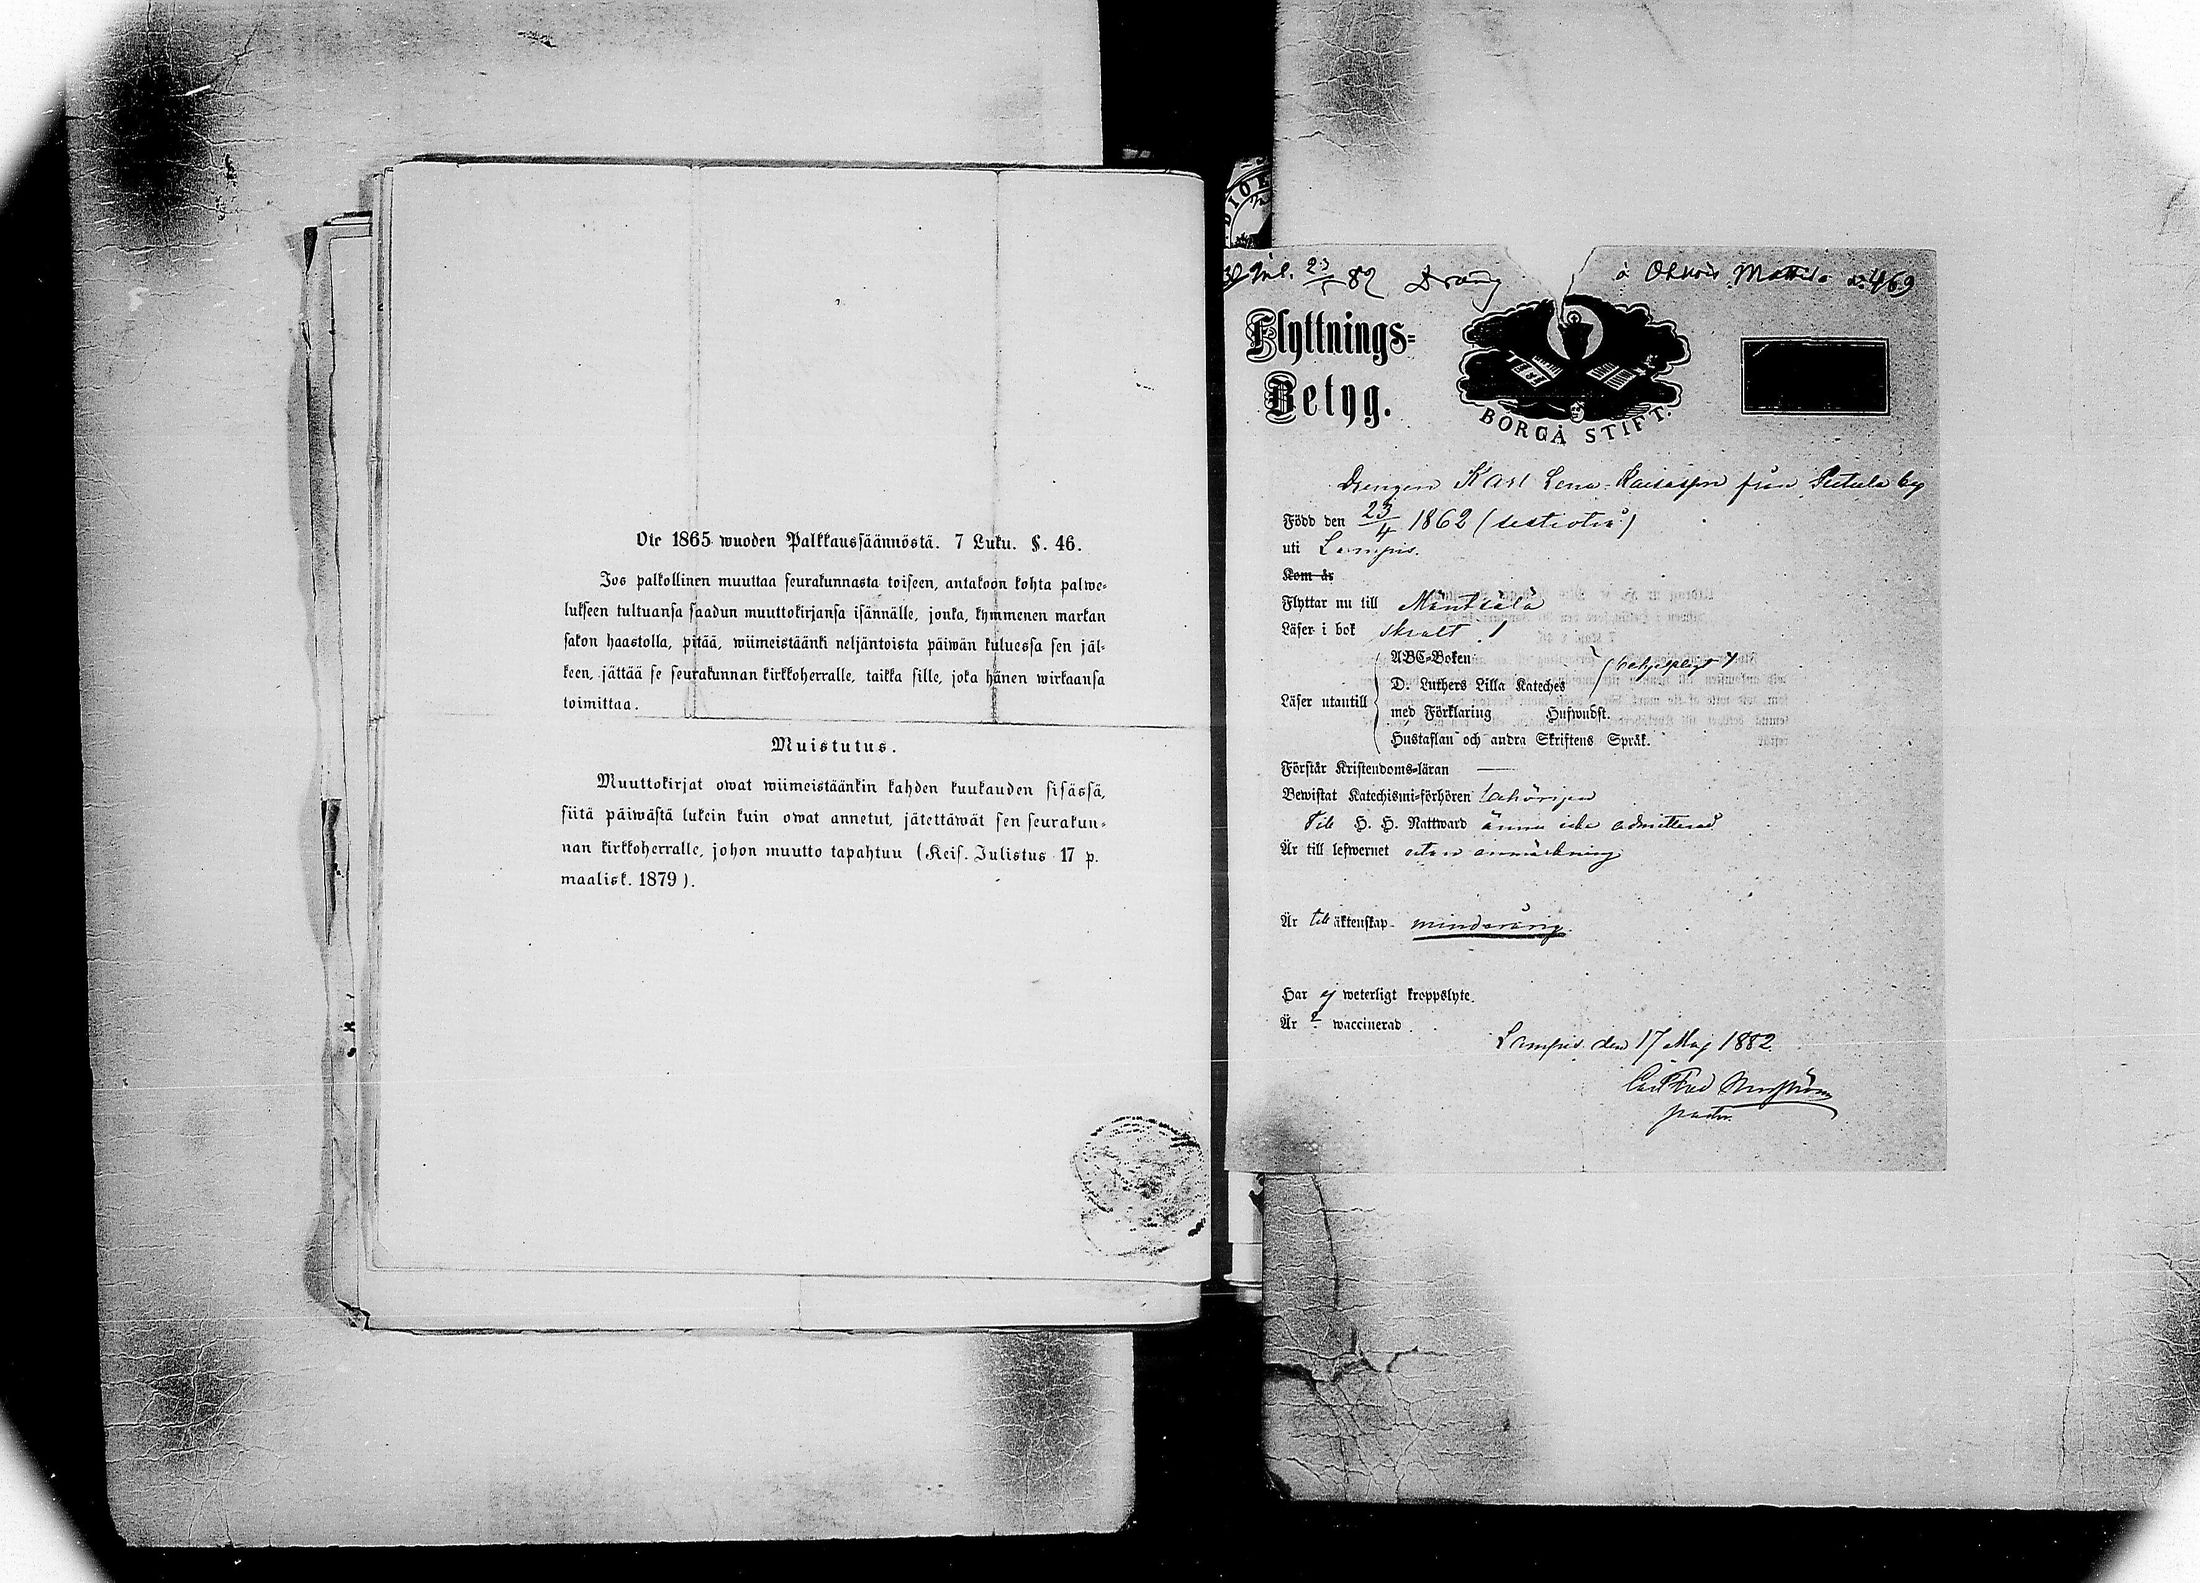 Ote 1865 wuoden Palkkaussäännöstä. 7 Luku. §. 46.
Jos palkollinen muuttaa seurakunnasta toiseen, antakoon kohta palwe-
lukseen tultuansa saadun muuttokirjansa isännälle, jonka, kymmenen markan
sakon haastolla, pitää, wiimeistäänki neljäntoista päiwän kuluessa sen jäl-
keen, jättää se seurakunnan kirkkoherralle, taikka sille, joka hänen wirkaansa
toimittaa.
Muistutus.
Muuttokirjat owat wiimeistäänkin kahden kuukauden sisässä,
siitä päiwästä lukein kuin owat annetut, jätettäwät sen seurakun-
nan kirkkoherralle, johon muutto tapahtuu (Keis. Julistus 17 p.
maalisk. 1879).
23/5 82 Dräng à Ohkois Mattila 469
Flyttnings-
Betyg.
BORGÅ STIFT.
Drengen Karl från by
Född den 23/4 1862
uti Lampis.
Kom år
Flyttar nu till Mäntsälä
Läser i bok svalt
ABC-Boken
D. Luthers Lilla Kateches
Läser utantill
med Förklaring Hufwudst.
Hustaflan och andra Skriftens Språk.
Förstår Kristendoms-läran —
Bewistat Katechismi-förhören
Till H. H. Nattward ännu icke admitterad
Är till lefwernet utan anmärkning
Är till äktenskap minderårig.
Har ej weterligt kroppslyte.
Är waccinerad.
Lampis den 17 Maj 1882.